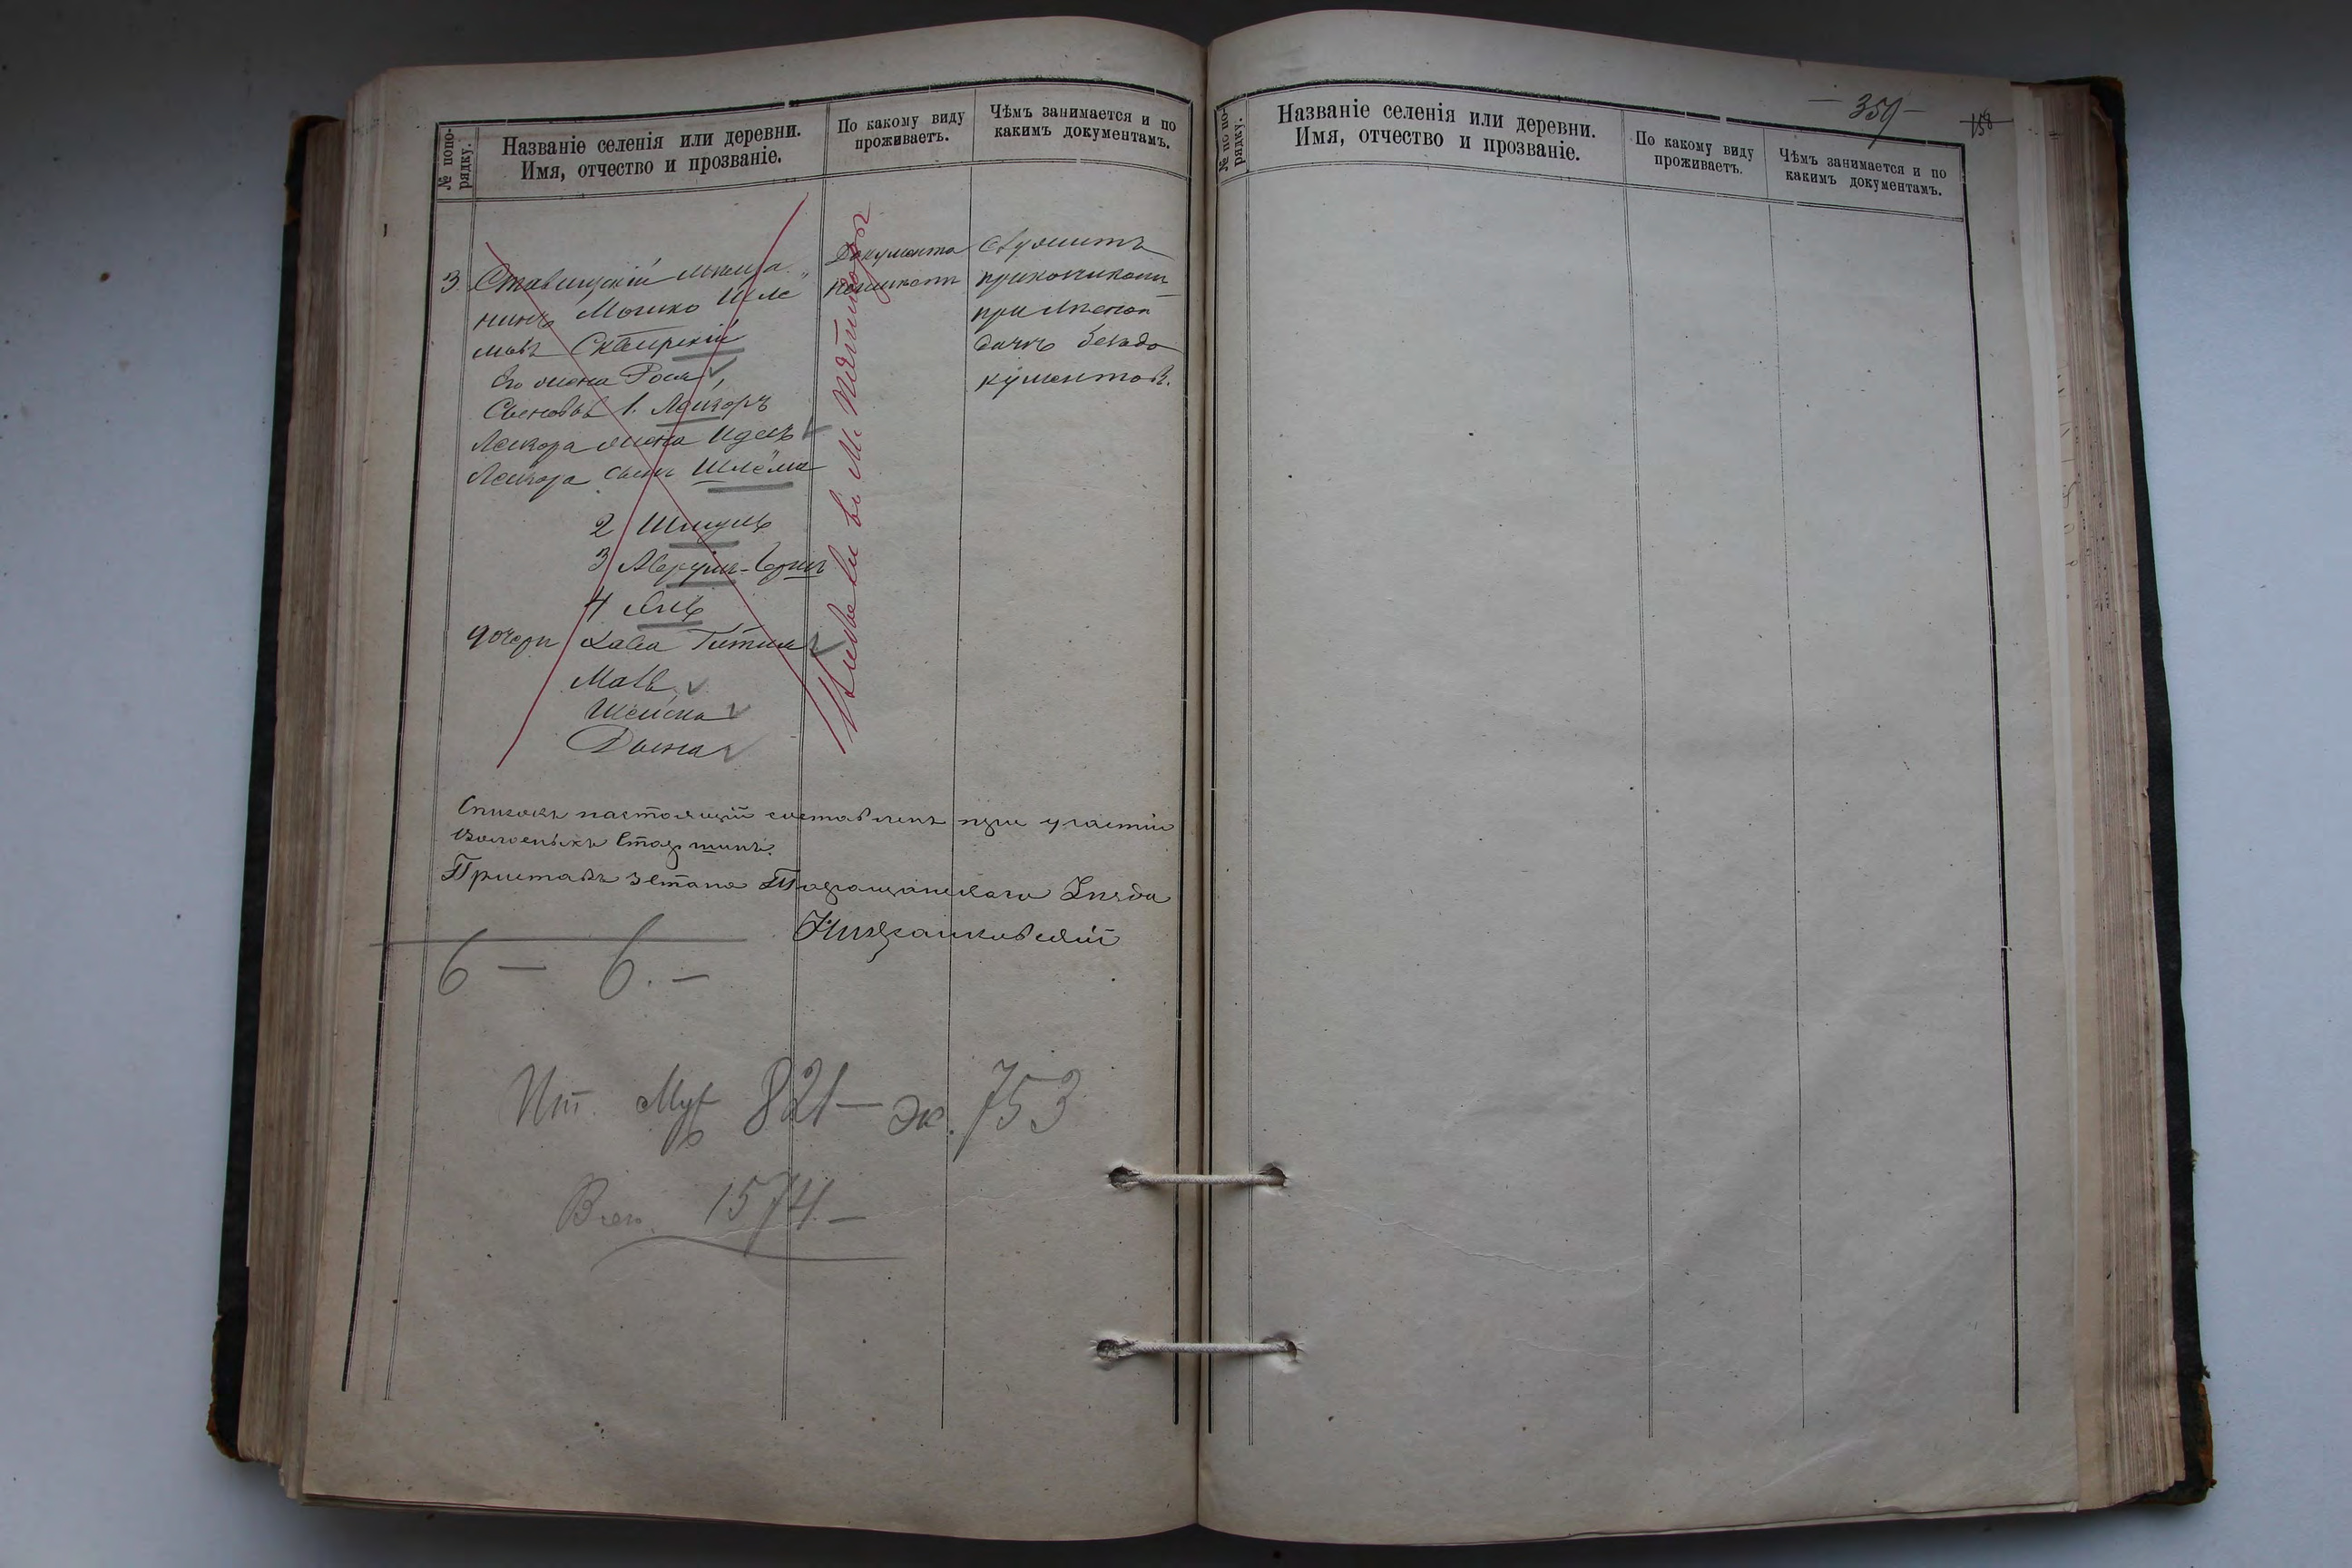 № попо-
рядку.
Названіе селенія или деревни.
Имя, отчество и прозваніе.
По какому виду
проживаетъ.
Чѣмъ занимается и по
какимъ документамъ.
3 Ставищскій мѣща-
нинъ Мошко Шле
мовъ Сквирскій
Его жена Рося
Сыновья 1. Лейзоръ
Лейзора жена
Лейзора сынъ Шлёма
2 Шмуль
3
4
дочери Хава
Шейна
Двойра
Документа
неимѣетъ
Служитъ
прикащикомъ
при лѣсной
дачѣ безъ до
кументов.
въ М.
Списокъ настоящій составленъ при участіи
Волостныхъ Старшинъ.
Приставъ 3 стана Таращанскаго Уѣзда
6 — 6. —
Ит. Муж 821 — ж. 753
Всего 1574 —
№ по по-
рядку.
Названіе селенія или деревни.
Имя, отчество и прозваніе.
По какому виду
проживаетъ.
Чѣмъ занимается и по
какимъ документамъ.
— 359 —
158